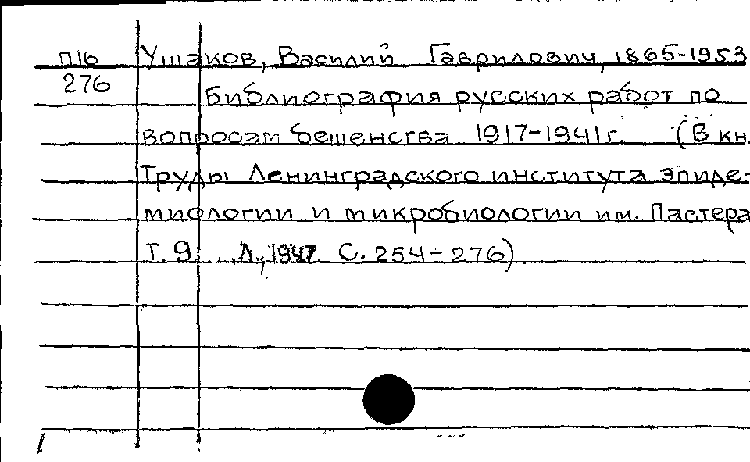 П16 Ушаков, Василий Гаврилович, 1865-1953
276 Библиография русских работ по
вопросам бешенства 1917-1941г. (В кн.
Труды Ленинградского института эпиде-
миологии и микробиологии им. Пастера
Т. 9. Л., 1947. С. 254-276)